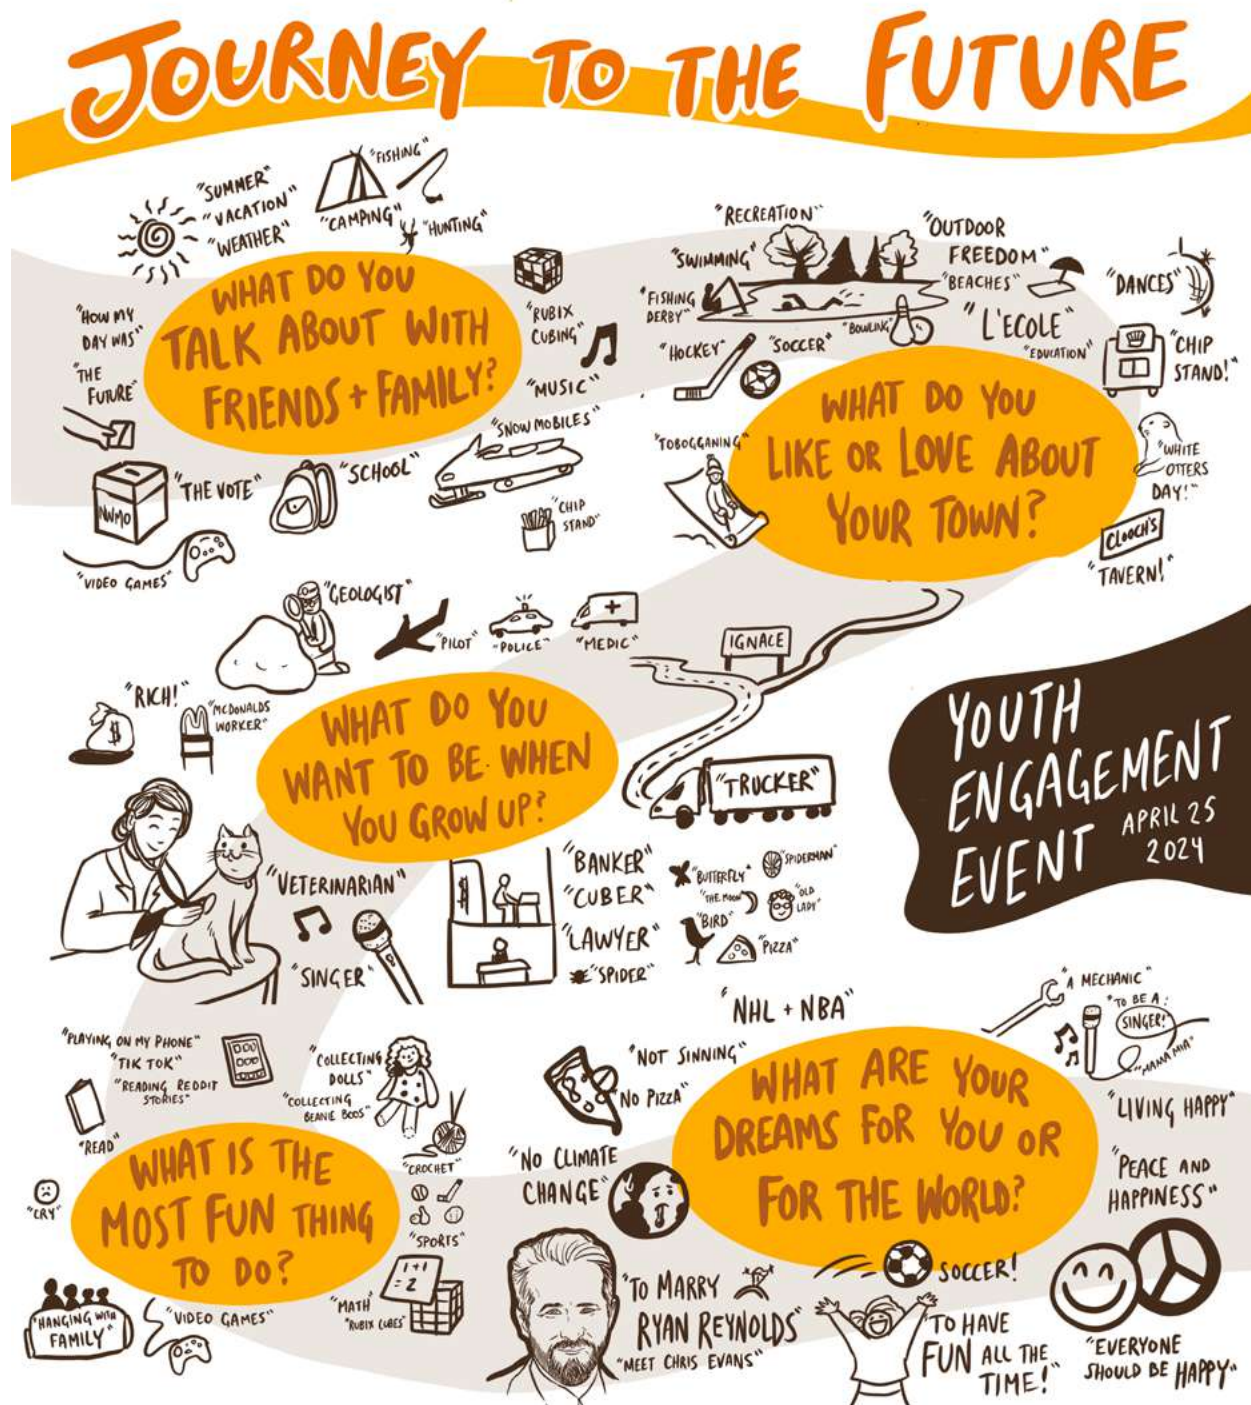 JOURNEY TO THE FUTURE
"SUMMER"
"VACATION"
"WEATHER"
"FISHING"
"CAMPING"
"HUNTING"
"HOW MY
DAY WAS"
"THE
FUTURE"
WHAT DO YOU
TALK ABOUT WITH
FRIENDS + FAMILY?
"RUBIX
CUBING"
"MUSIC"
"SNOW MOBILES"
"CHIP
STAND"
"SCHOOL"
"THE VOTE"
NWMO
"VIDEO GAMES"
"RECREATION"
"SWIMMING"
"FISHING
DERBY"
"OUTDOOR
FREEDOM"
"BEACHES"
"DANCES"
"BOWLING"
"L'ECOLE"
"EDUCATION"
"CHIP
STAND!"
"HOCKEY"
"SOCCER"
"TOBOGGANING"
WHAT DO YOU
LIKE OR LOVE ABOUT
YOUR TOWN?
"WHITE
OTTERS
DAY!"
CLOOCH'S
"TAVERN!"
"GEOLOGIST"
"PILOT"
"POLICE"
"MEDIC"
IGNACE
"RICH!"
$
"MCDONALDS
WORKER"
WHAT DO YOU
WANT TO BE WHEN
YOU GROW UP?
"TRUCKER"
YOUTH
ENGAGEMENT
EVENT
APRIL 25
2024
"VETERINARIAN"
"SINGER"
$
"BANKER"
"CUBER"
"LAWYER"
"SPIDER"
"BUTTERFLY"
"SPIDERMAN"
"THE MOON"
"OLD
LADY"
"BIRD"
"PIZZA"
"PLAYING ON MY PHONE"
"TIK TOK"
"READING REDDIT
STORIES"
"READ"
"COLLECTING
DOLLS"
"COLLECTING
BEANIE BOOS"
"CROCHET"
WHAT IS THE
MOST FUN THING
TO DO?
"CRY"
"SPORTS"
"HANGING WITH
FAMILY"
"VIDEO GAMES"
"MATH"
"RUBIX CUBES"
1+1
=2
"NHL + NBA"
"NOT SINNING"
"NO PIZZA"
"NO CLIMATE
CHANGE"
WHAT ARE YOUR
DREAMS FOR YOU OR
FOR THE WORLD?
"A MECHANIC"
"TO BE A:
SINGER!"
"MAMA MIA"
"LIVING HAPPY"
"PEACE AND
HAPPINESS"
"TO MARRY
RYAN REYNOLDS"
"MEET CHRIS EVANS"
SOCCER!
"TO HAVE
FUN ALL THE
TIME!"
"EVERYONE
SHOULD BE HAPPY"